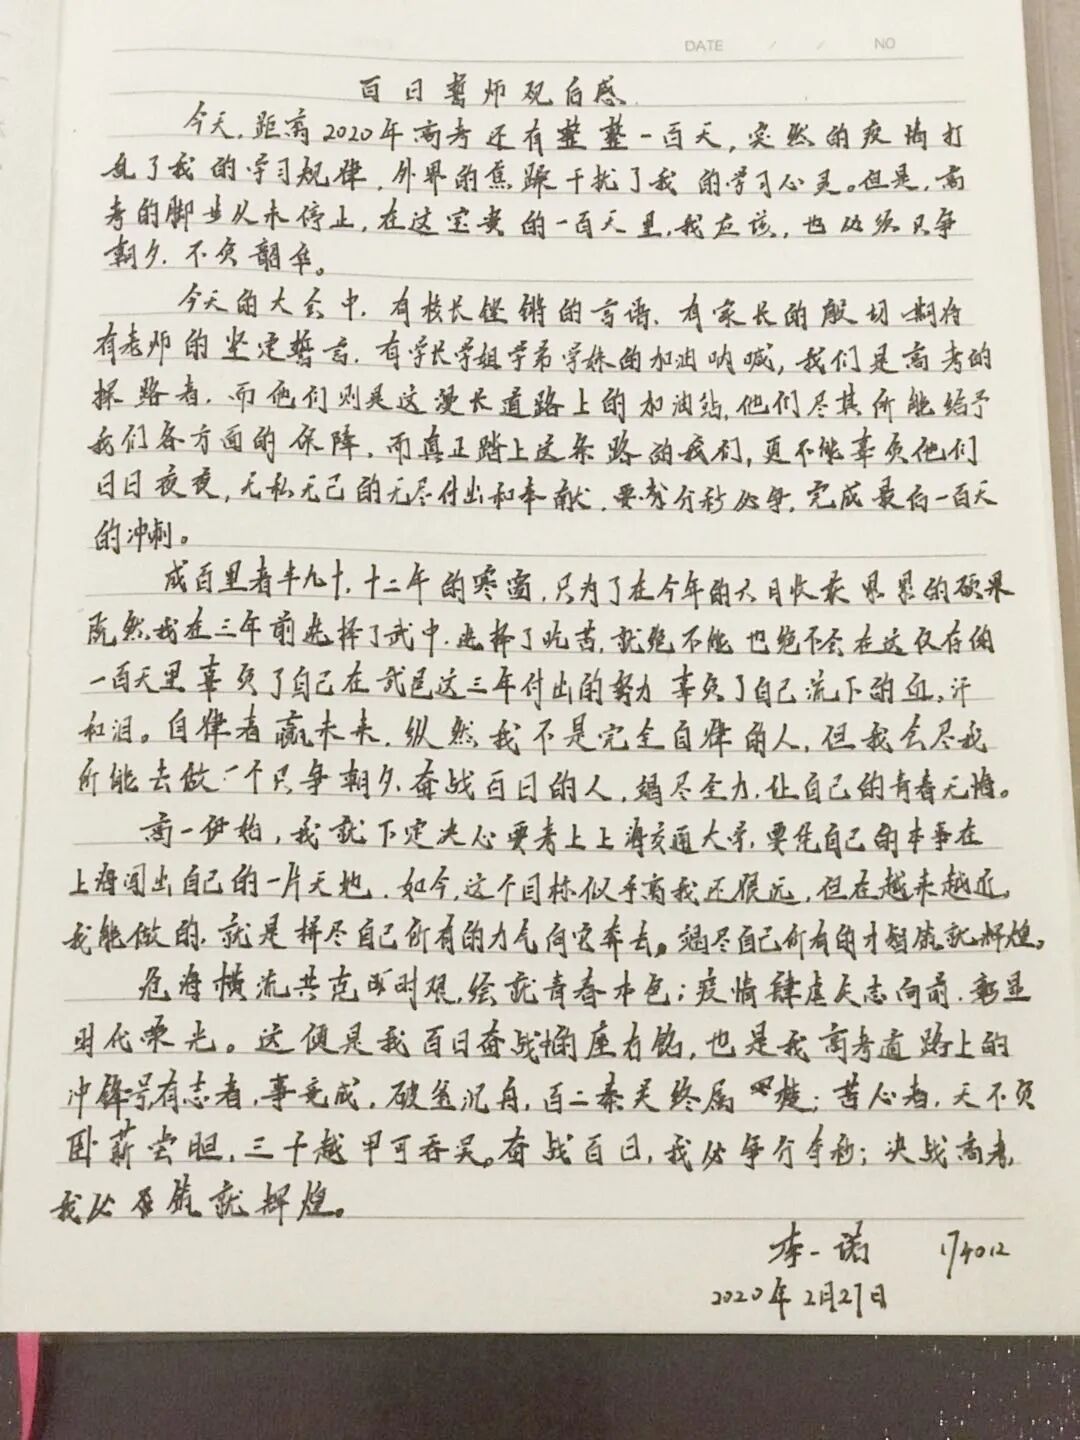 DATE / / NO
百日誓师观后感
今天,距离2020年高考还有整整一百天,突然的疫情打
乱了我的学习规律,外界的焦躁干扰了我的学习心灵。但是,高
考的脚步从未停止,在这宝贵的一百天里,我应该,也必须只争
朝夕,不负韶华。
今天的大会中,有校长铿锵的言语,有家长的殷切期待
有老师的坚定誓言,有学长学姐学弟学妹的加油呐喊,我们是高考的
探路者,而他们则是这漫长道路上的加油站,他们尽其所能给予
我们各方面的保障,而真正踏上这条路的我们,更不能辜负他们
日日夜夜,无私无己的无尽付出和奉献,要分秒必争,完成最后一百天
的冲刺。
成百里者半九十,十二年的寒窗,只为了在今年的六月收获累累的硕果
既然我在三年前选择了武中,选择了吃苦,就绝不能也绝不会在这仅存的
一百天里辜负了自己在武邑这三年付出的努力 辜负了自己流下的血,汗
和泪。自律者赢未来,纵然我不是完全自律的人,但我会尽我
所能去做一个只争朝夕,奋战百日的人,竭尽全力,让自己的青春无悔。
高一伊始,我就下定决心要考上上海交通大学,要凭自己的本事在
上海闯出自己的一片天地,如今,这个目标似乎离我还很远,但在越来越近,
我能做的,就是拼尽自己所有的力气向它奔去。竭尽自己所有的才智铸就辉煌。
沧海横流共克时艰,绘就青春本色;疫情肆虐矢志向前,彰显
时代荣光。这便是我百日奋战的座右铭,也是我高考道路上的
冲锋号,有志者,事竟成,破釜沉舟,百二秦关终属楚;苦心者,天不负
卧薪尝胆,三千越甲可吞吴。奋战百日,我必争分夺秒;决战高考,
我必铸就辉煌。
李一诺 174012
2020年2月27日